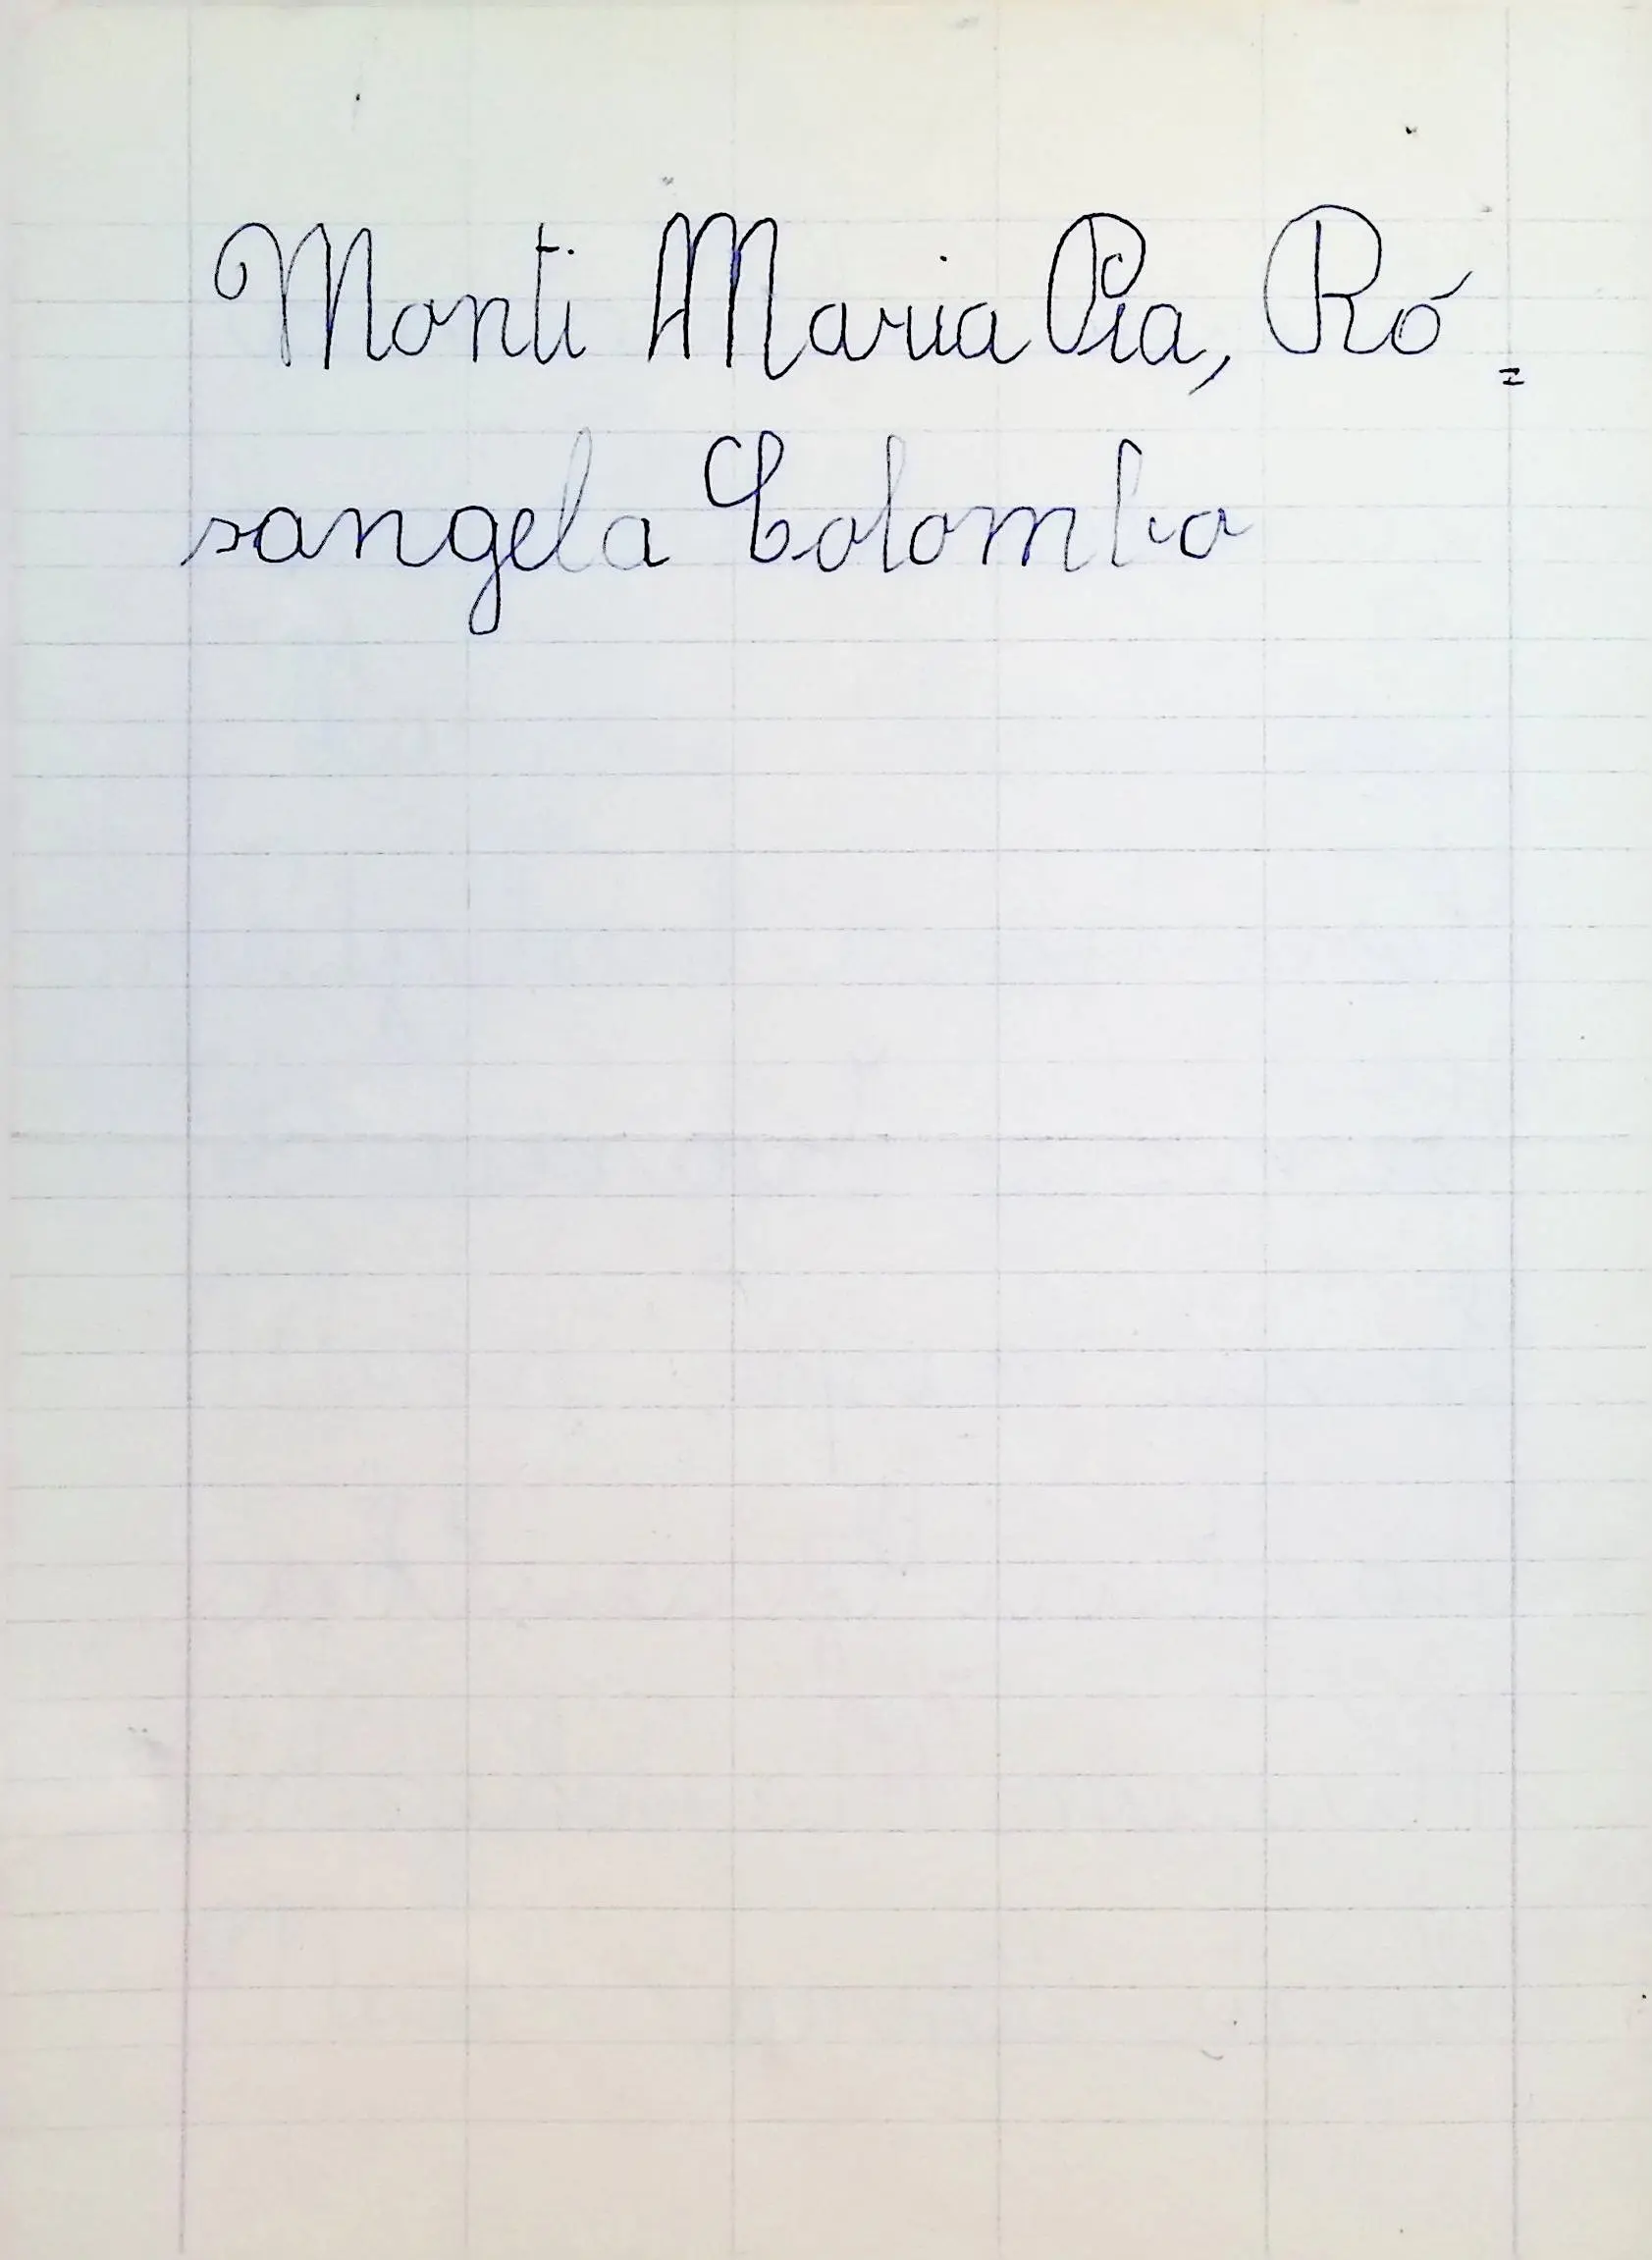 Monti Maria Pia, Ro=
sangela Colombo